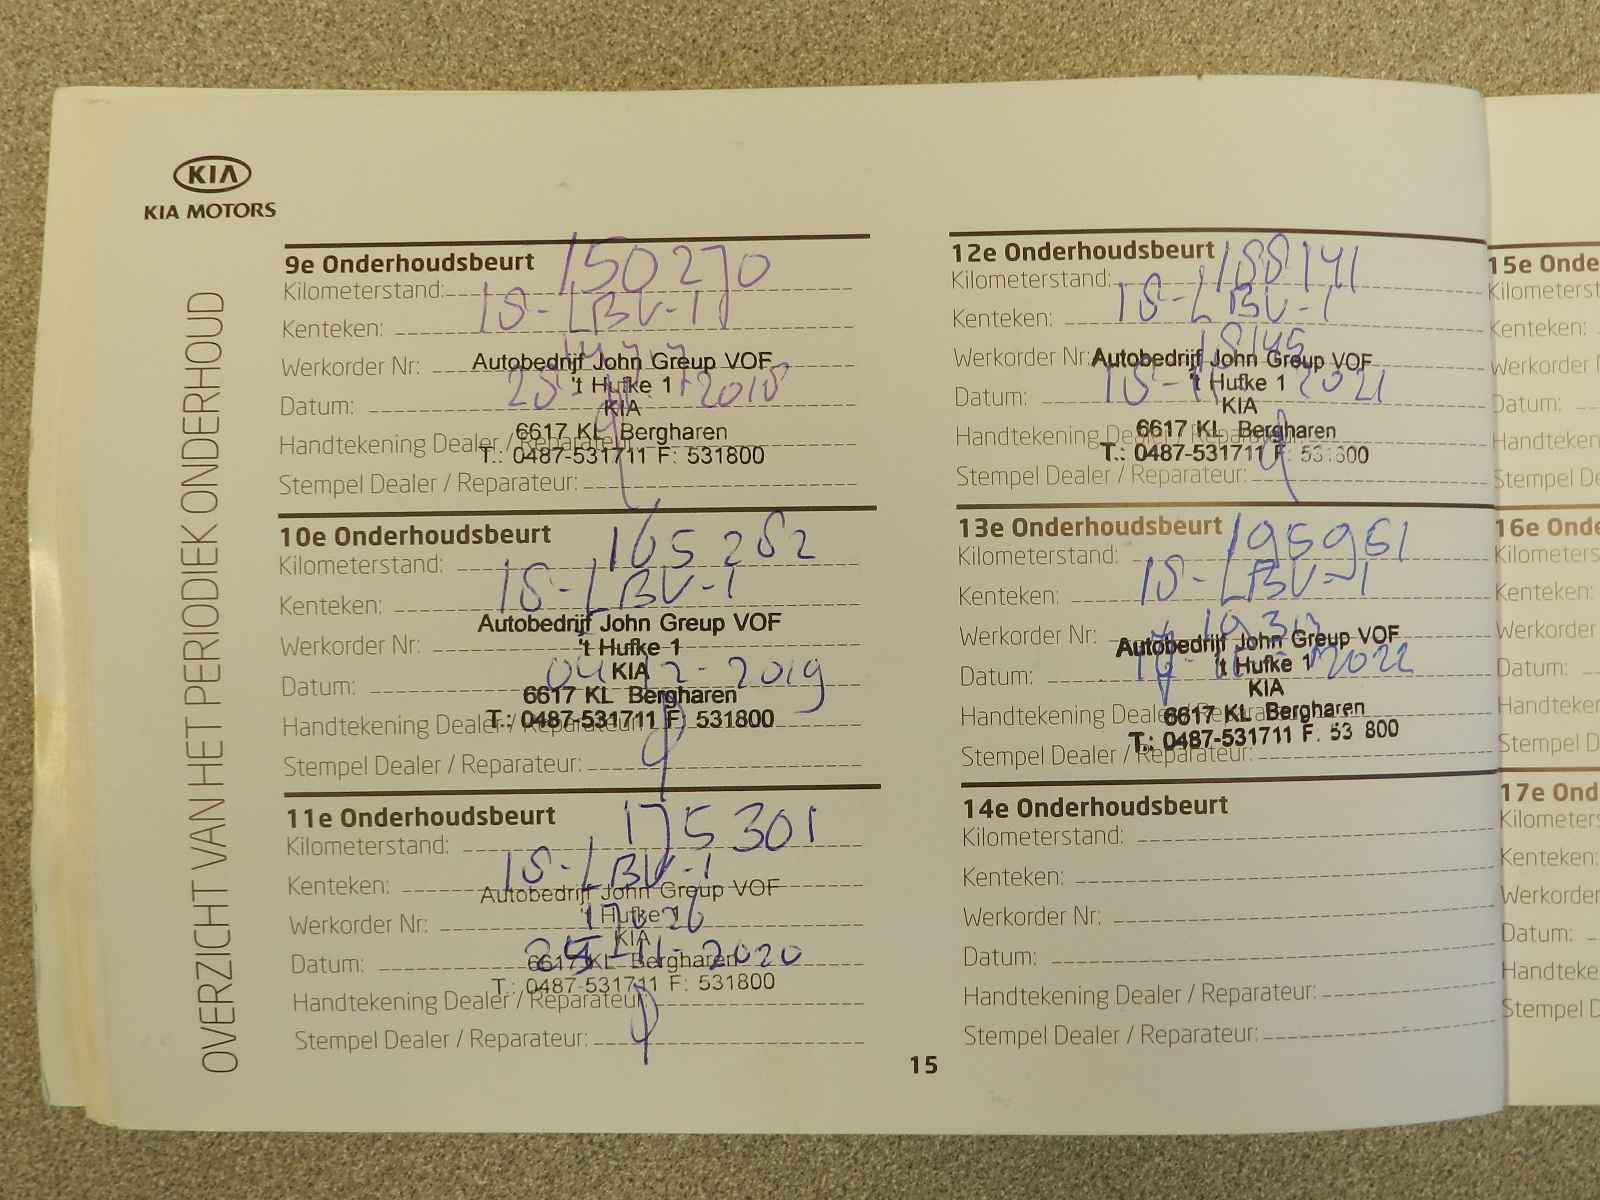 KIA
KIA MOTORS
OVERZICHT VAN HET PERIODIEK ONDERHOUD
9e Onderhoudsbeurt
Kilometerstand: 150270
Kenteken: 18-LBV-1
Werkorder Nr:
Autobedrijf John Greup VOF
't Hufke 1
Datum: 2018
KIA
6617 KL Bergharen
Handtekening Dealer / Reparateur:
T.: 0487-531711 F: 531800
Stempel Dealer / Reparateur:
10e Onderhoudsbeurt
Kilometerstand: 165282
Kenteken: 18-LBV-1
Autobedrijf John Greup VOF
Werkorder Nr:
't Hufke 1
KIA
Datum: 04-12-2019
6617 KL Bergharen
Handtekening Dealer / Reparateur:
T.: 0487-531711 F: 531800
Stempel Dealer / Reparateur:
11e Onderhoudsbeurt
Kilometerstand: 175301
Kenteken: 18-LBV-1
Autobedrijf John Greup VOF
Werkorder Nr:
't Hufke 1
KIA
Datum: 11-2020
6617 KL Bergharen
T.: 0487-531711 F: 531800
Handtekening Dealer / Reparateur:
Stempel Dealer / Reparateur:
12e Onderhoudsbeurt
Kilometerstand: 188141
Kenteken: 18-LBV-1
Werkorder Nr: 18145
Autobedrijf John Greup VOF
't Hufke 1
Datum: 18-11-2021
KIA
6617 KL Bergharen
Handtekening Dealer / Reparateur:
T.: 0487-531711 F: 531800
Stempel Dealer / Reparateur:
13e Onderhoudsbeurt
Kilometerstand: 195951
Kenteken: 18-LBV-1
Werkorder Nr:
Autobedrijf John Greup VOF
't Hufke 1
Datum: 2022
KIA
6617 KL Bergharen
Handtekening Dealer / Reparateur:
T.: 0487-531711 F: 53 800
Stempel Dealer / Reparateur:
14e Onderhoudsbeurt
Kilometerstand:
Kenteken:
Werkorder Nr:
Datum:
Handtekening Dealer / Reparateur:
Stempel Dealer / Reparateur:
15
15e Onde
Kilometerst
Kenteken:
Werkorder N
Datum:
Handteken
Stempel De
16e Onde
Kilometers
Kenteken:
Werkorder
Datum:
Handteker
Stempel D
17e Ond
Kilometers
Kenteken:
Werkorder
Datum:
Handteke
Stempel D